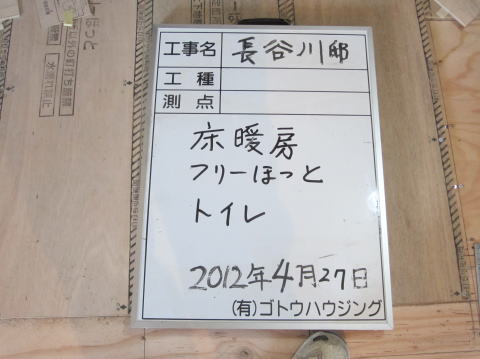 工事名 長谷川邸
工種
測点
床暖房
フリーほっと
トイレ
2012年4月27日
(有)ゴトウハウジング